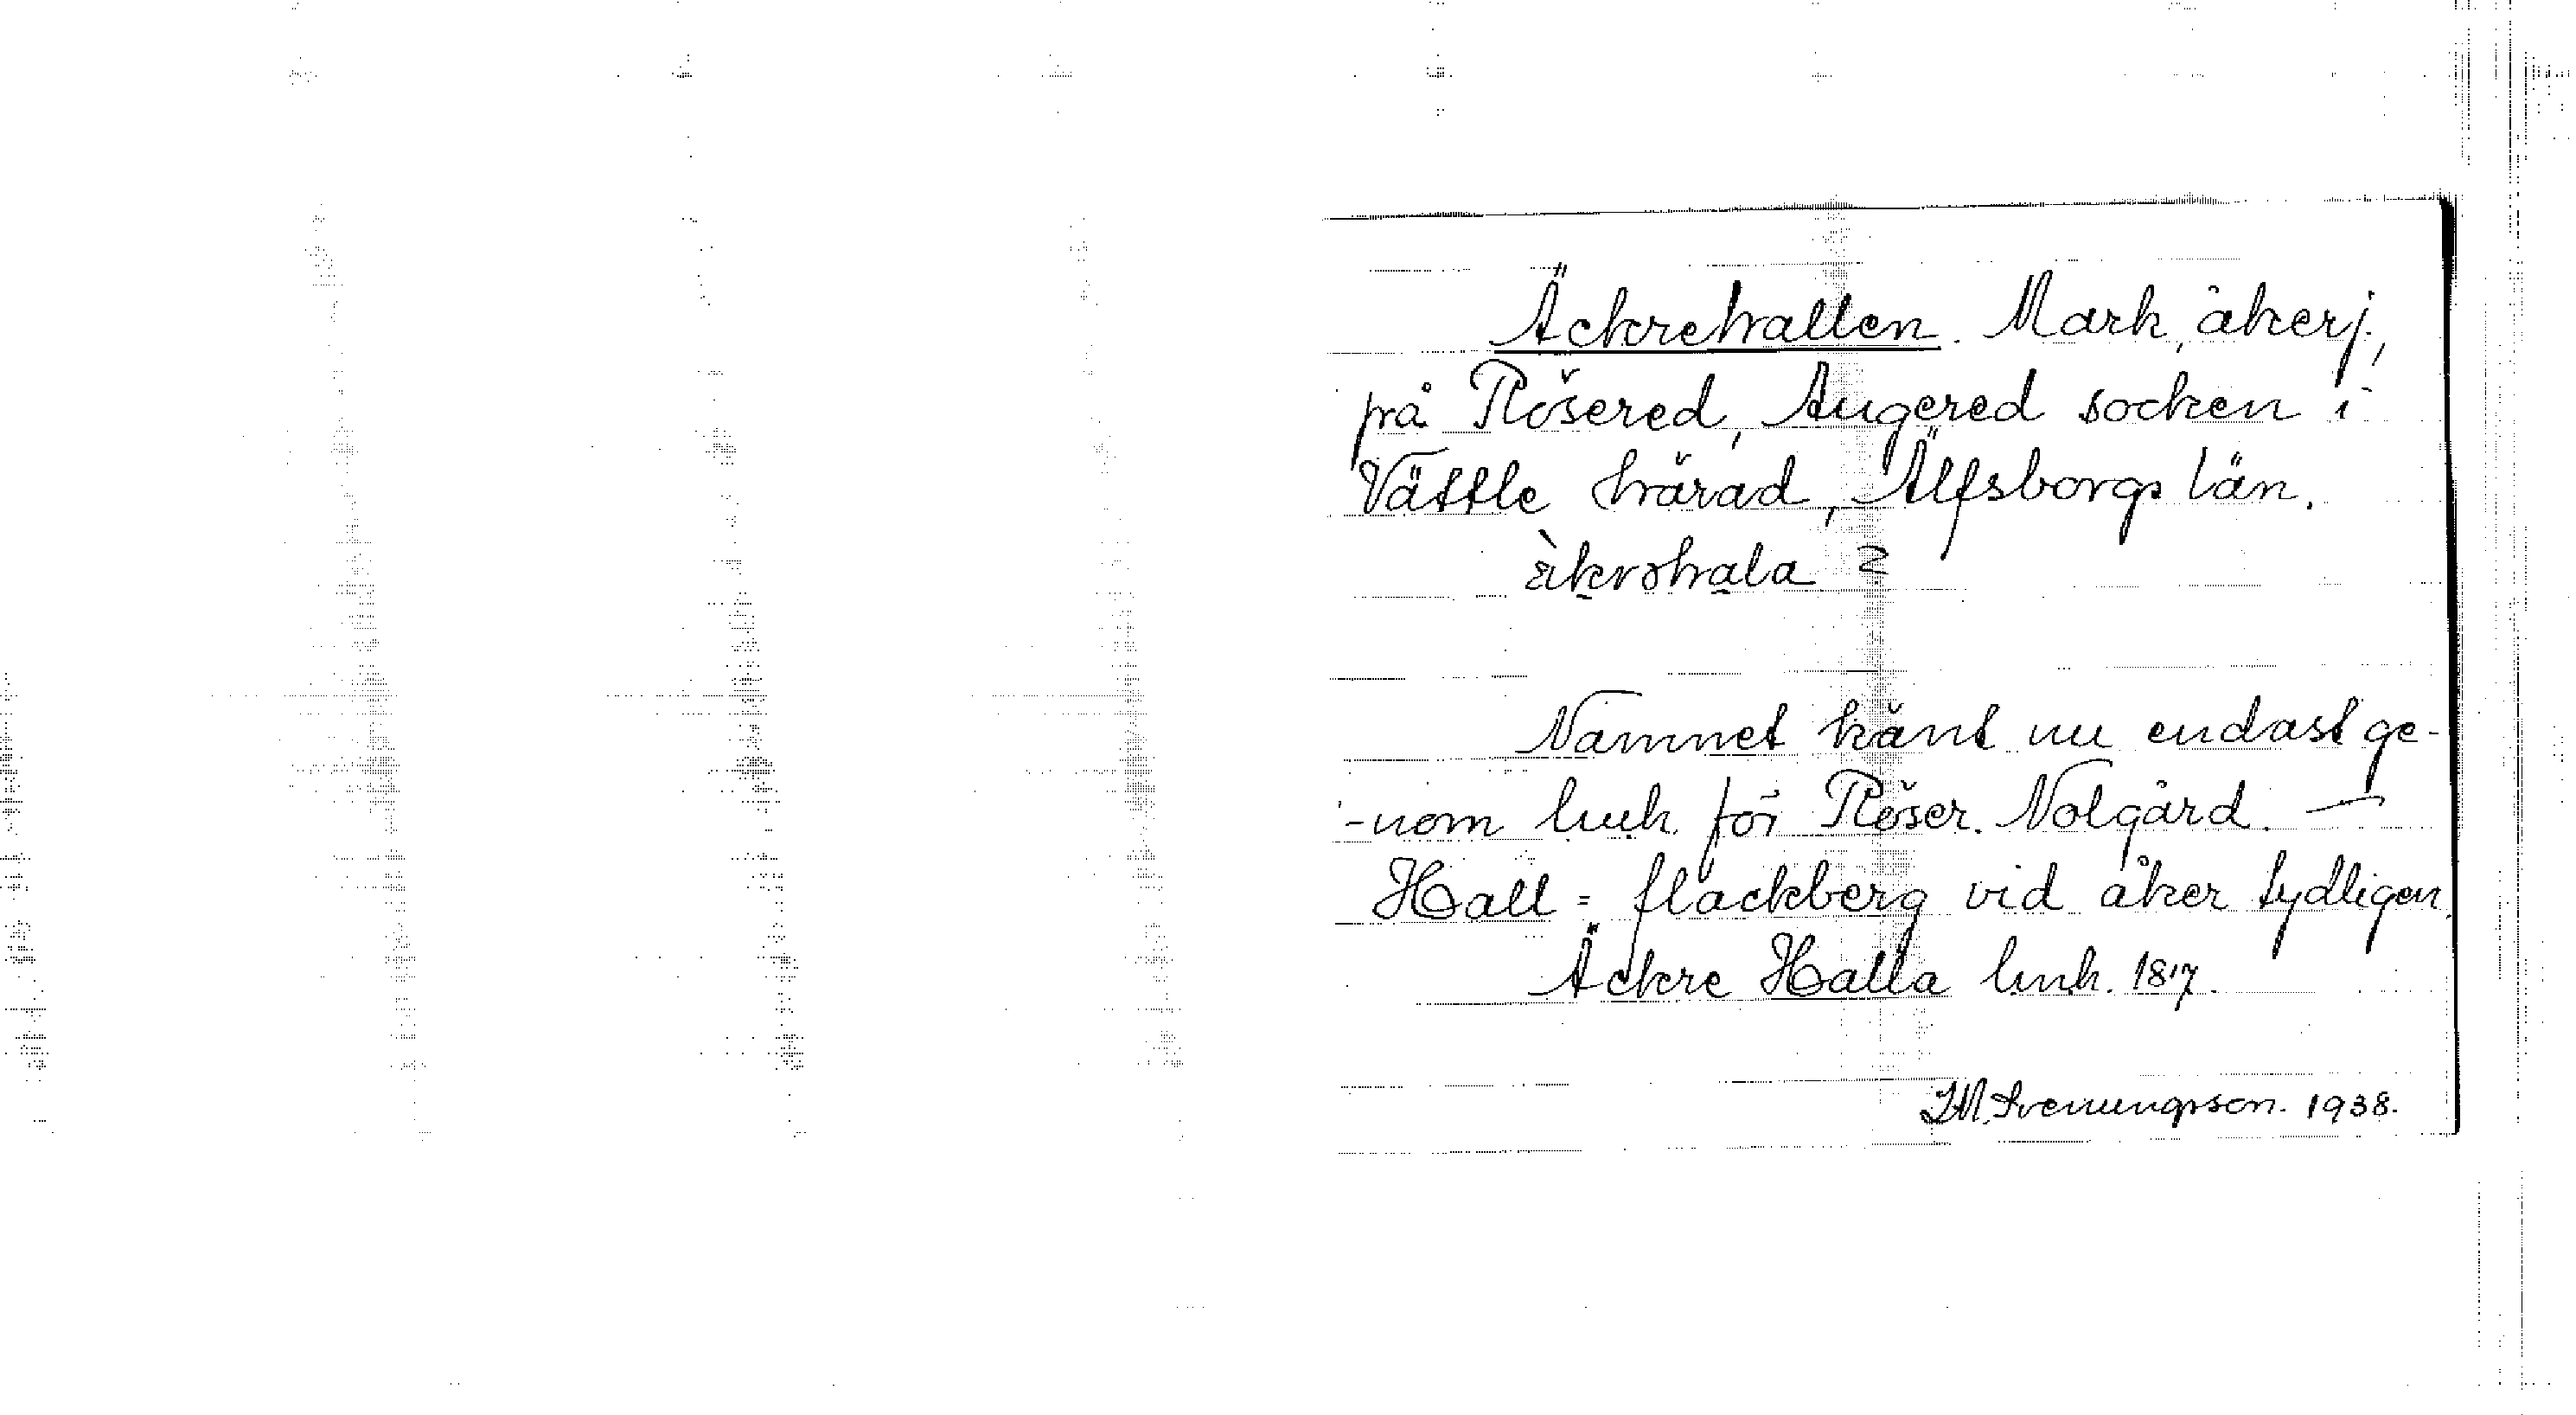 Äckrehallen. Mark, åkerj,
på Rösered, Angered socken i
Vättle härad, Älfsborgs län.
àkrəhala 2
Namnet känt nu endast ge-
-nom lmh. för Röser. Nolgård. —
Hall = flackberg vid åker tydligen
Äckre Halla lmh. 1817.
I.M. Svenungsson. 1938.